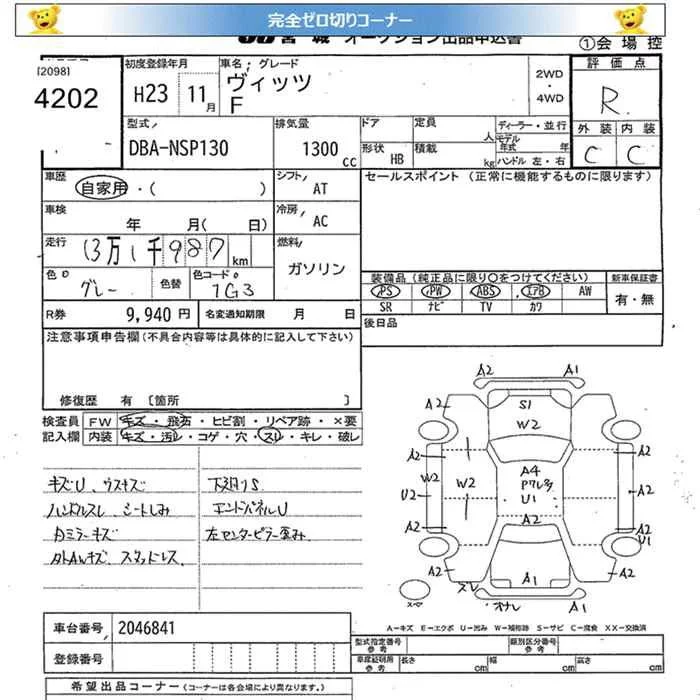 完全ゼロ切りコーナー
JU 宮城 オークション出品申込書
①会場控
[2098]
4202
初度登録年月
H23 11月
車名・グレード
ヴィッツ
F
2WD
・
4WD
評価点
R
外装 内装
C C
型式
DBA-NSP130
排気量
1300 cc
ドア
形状 HB
定員 人
積載 kg
ディーラー・並行
モデル年式 年
ハンドル 左・右
車歴
自家用・( )
シフト AT
セールスポイント (正常に機能するものに限ります)
車検
年 月( 日)
冷房 AC
走行
13万1千987km
燃料
ガソリン
色
グレー
色替
色コード
1G3
装備品(純正品に限り○をつけてください)
新車保証書
PS PW ABS エアB AW
SR ナビ TV カワ
有・無
R券 9,940円
名変通知期限 月 日
後日品
注意事項申告欄(不具合内容等は具体的に記入して下さい)
修復歴 有 [箇所 ]
検査員
記入欄
FW キズ・飛石・ヒビ割・リペア跡・×要
内装 キズ・汚レ・コゲ・穴・スレ・キレ・破レ
キズU、ウスキズ
ハンドルスレ シートしみ
カミラーキズ
タトAWキズ スタッドレス
下廻りS
エンドパネルU
左センターピラー歪み
A2 A1
A2 S1 A2
W2
A2 A2
W2 W2 A4
U2 U1 A2
A2 A2 A2
U1
A2 A2
スレ A1
オナレ A1
A-キズ E-エクボ U-凹み W-補修跡 S-サビ C-腐食 XX-交換済
車台番号 2046841
登録番号
型式指定番号
参考
類別区分番号
参考
車庫証明用
参考
長さ cm 幅 cm 高さ cm
希望出品コーナー (コーナーは各会場により異なります。)